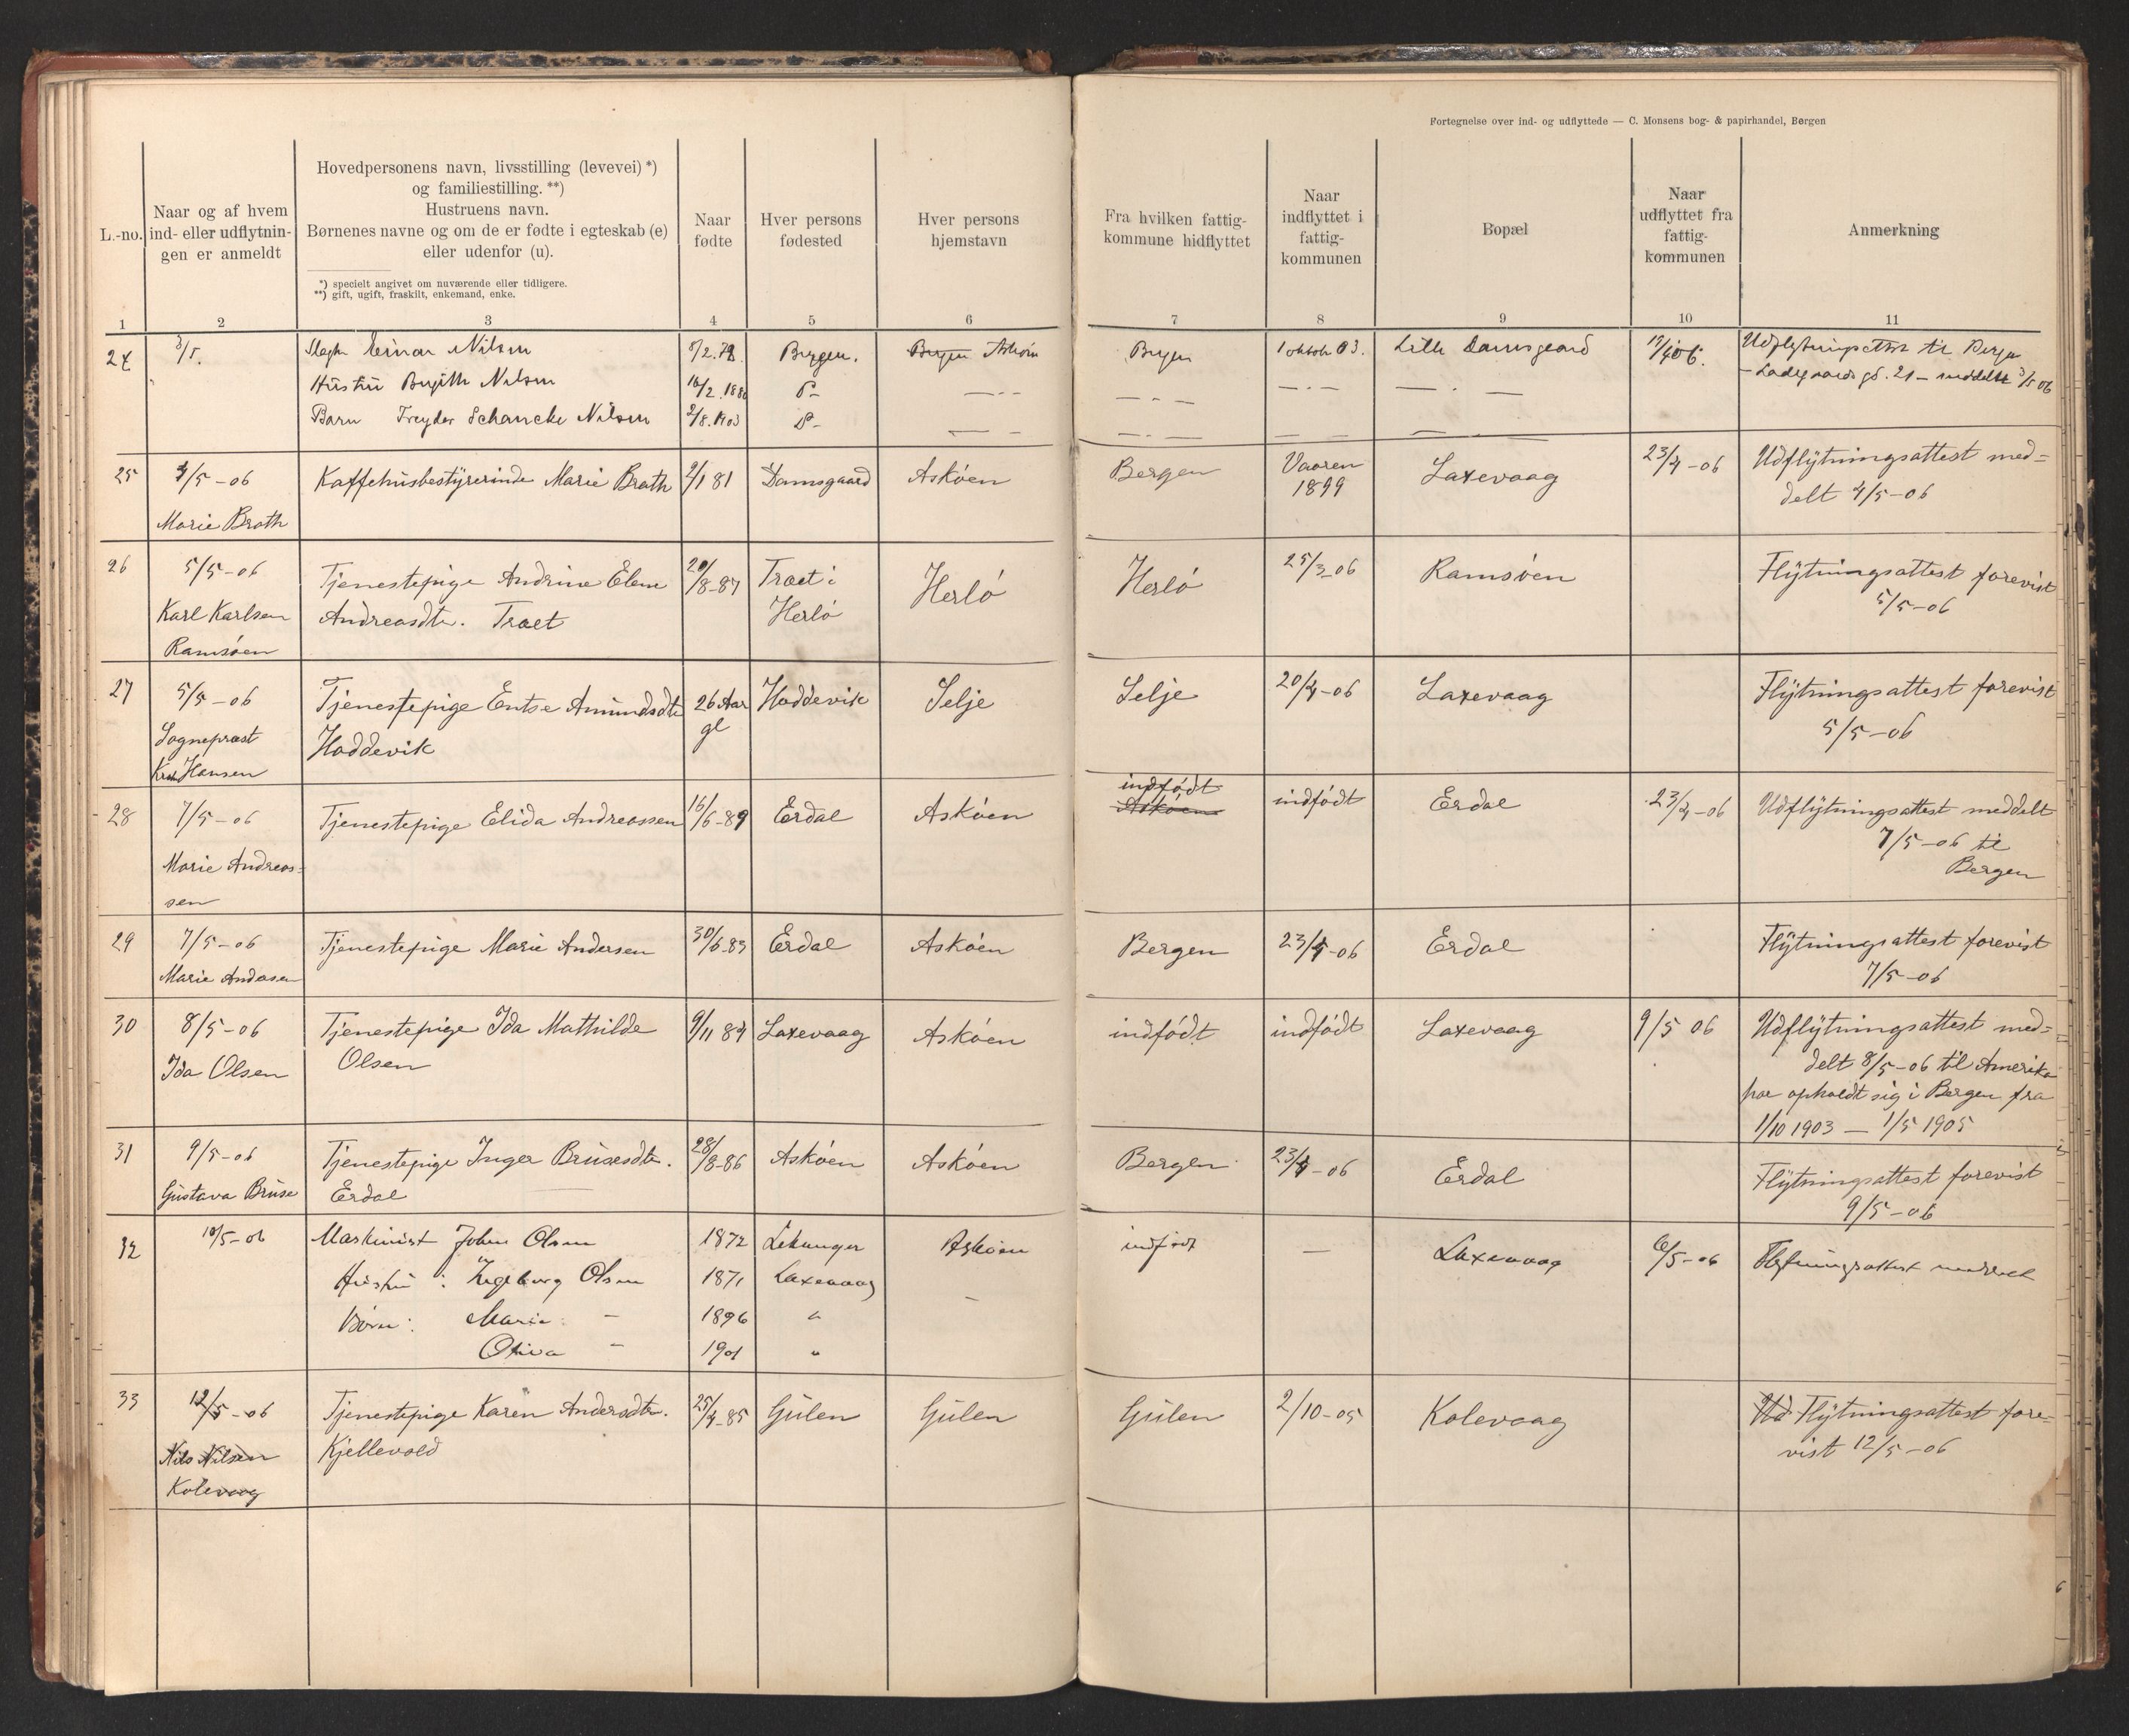 Fortegnelse over ind- og udflyttede — C. Monsens bog- & papirhandel, Bergen
L.-no.
Naar og af hvem
ind- eller udflytnin-
gen er anmeldt
Hovedpersonens navn, livsstilling (levevei) *)
og familiestilling. **)
Hustruens navn.
Børnenes navne og om de er fødte i egteskab (e)
eller udenfor (u).
*) specielt angivet om nuværende eller tidligere.
**) gift, ugift, fraskilt, enkemand, enke.
Naar
fødte
Hver persons
fødested
Hver persons
hjemstavn
Fra hvilken fattig-
kommune hidflyttet
Naar
indflyttet i
fattig-
kommunen
Bopæl
Naar
udflyttet fra
fattig-
kommunen
Anmerkning
1 2 3 4 5 6 7 8 9 10 11
24 3/5. Einar Nilsen 5/2.78. Bergen. Bergen Askøen Bergen 1 oktob 03. Lille Damsgaard 17/4 06. Udflytningsattest til Bergen
– Ladegaards gd. 21 – meddelt 3/5 06
Hustru Birgith Nilsen 16/2.1880 D– — – – — – — — – — — – —
Barn Schancke Nilsen 2/8.1903 D– — – — – — — — — —
25 4/5–06 Kaffehusbestyrerinde Marie Brath 2/1 81 Damsgaard Askøen Bergen Vaaren Laxevaag 23/4–06 Udflytningsattest med=
1899
delt 4/5–06
Marie Brath
26 5/5–06 Tjenestepige Andrine Elene 20/8–87 Træt i Herlø Herlø 25/3–06 Ramsøen Flytningsattest forevist
Karl Karlsen Andreasdtr. Træt Herlø 5/5–06
Ramsøen
27 5/5–06 Tjenestepige Entse Amundsdtr 26 Aar Hoddevik Selje Selje 20/4–06 Laxevaag Flytningsattest forevist
Sogneprest Hoddevik gl 5/5–06
Hansen
28 7/5–06 Tjenestepige Elida Andreassen 16/6–89 Erdal Askøen indfødt indfødt Erdal 23/4–06 Udflytningsattest meddelt
Askøen
7/5–06 til
Marie Andreas=
Bergen
sen
29 7/5–06 Tjenestepige Marie Andersen 30/6–83 Erdal Askøen Bergen 23/4–06 Erdal Flytningsattest forevist
Marie Andersen 7/5–06
30 8/5–06 Tjenestepige Ida Mathilde 9/11 84 Laxevaag Askøen indfødt indfødt Laxevaag 9/5 06 Udflytningsattest med=
Ida Olsen Olsen delt 8/5–06 til Amerika
har opholdt sig i Bergen fra
1/10 1903 — 1/5 1905
31 9/5–06 Tjenestepige Inger Brusesdtr. 28/8–86 Askøen Askøen Bergen 23/4–06 Erdal Flytningsattest forevist
Gustava Bruse Erdal 9/5–06
32 10/5–06 Maskinist Johan Olsen 1872 Askøen indfødt — Laxevaag 6/5–06 Flytningsattest meddelt
Hustru : Ingeborg Olsen 1871 Laxevaag
Børn : Marie – 1896 "
Oliva – 1901 "
33 12/5–06 Tjenestepige Karen Andersdtr. 25/4–85 Gulen Gulen Gulen 2/10–05 Kolevaag Ud Flytningsattest fore=
Nils Nilsen Kjellevold vist 12/5–06
Kolevaag